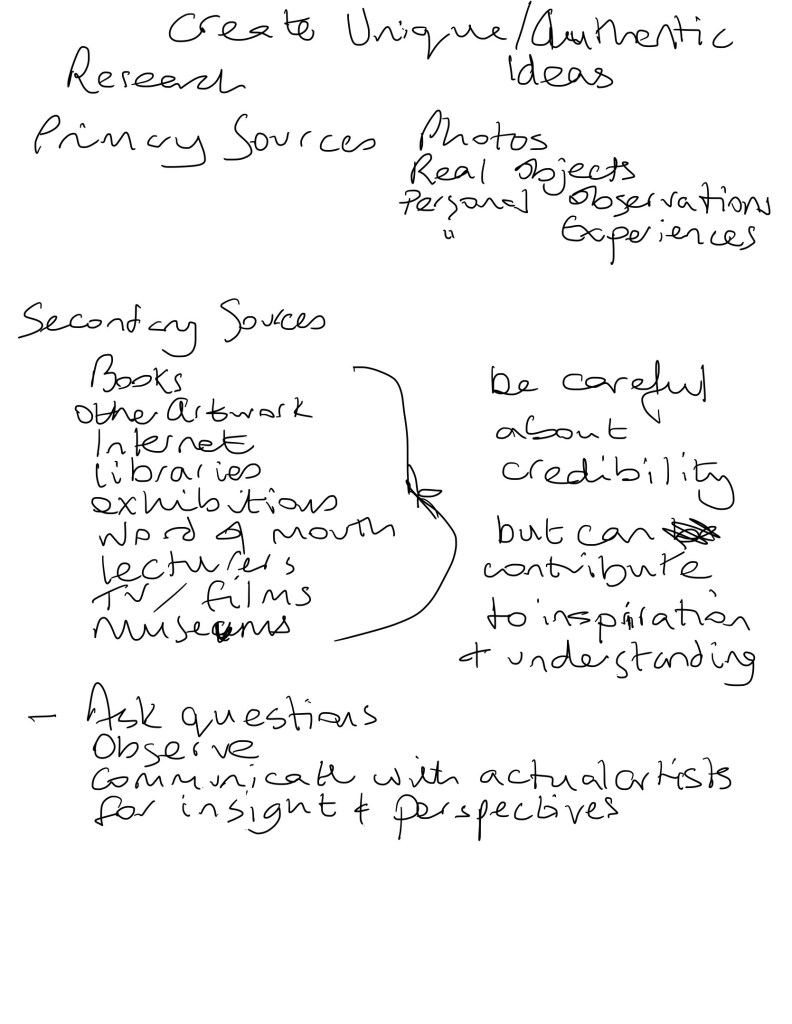 Create Unique/Authentic
Research Ideas
Primary Sources Photos
Real Objects
Personal Observations
" Experiences
Secondary Sources
Books
Othe Artwork
Internet
libraries
exhibitions
Word of mouth
Lecturers
TV / films
Museums
be careful
about
credibility
but can
contribute
to inspiration
+ understanding
- Ask questions
Observe
Communicate with actual artists
for insight + perspectives